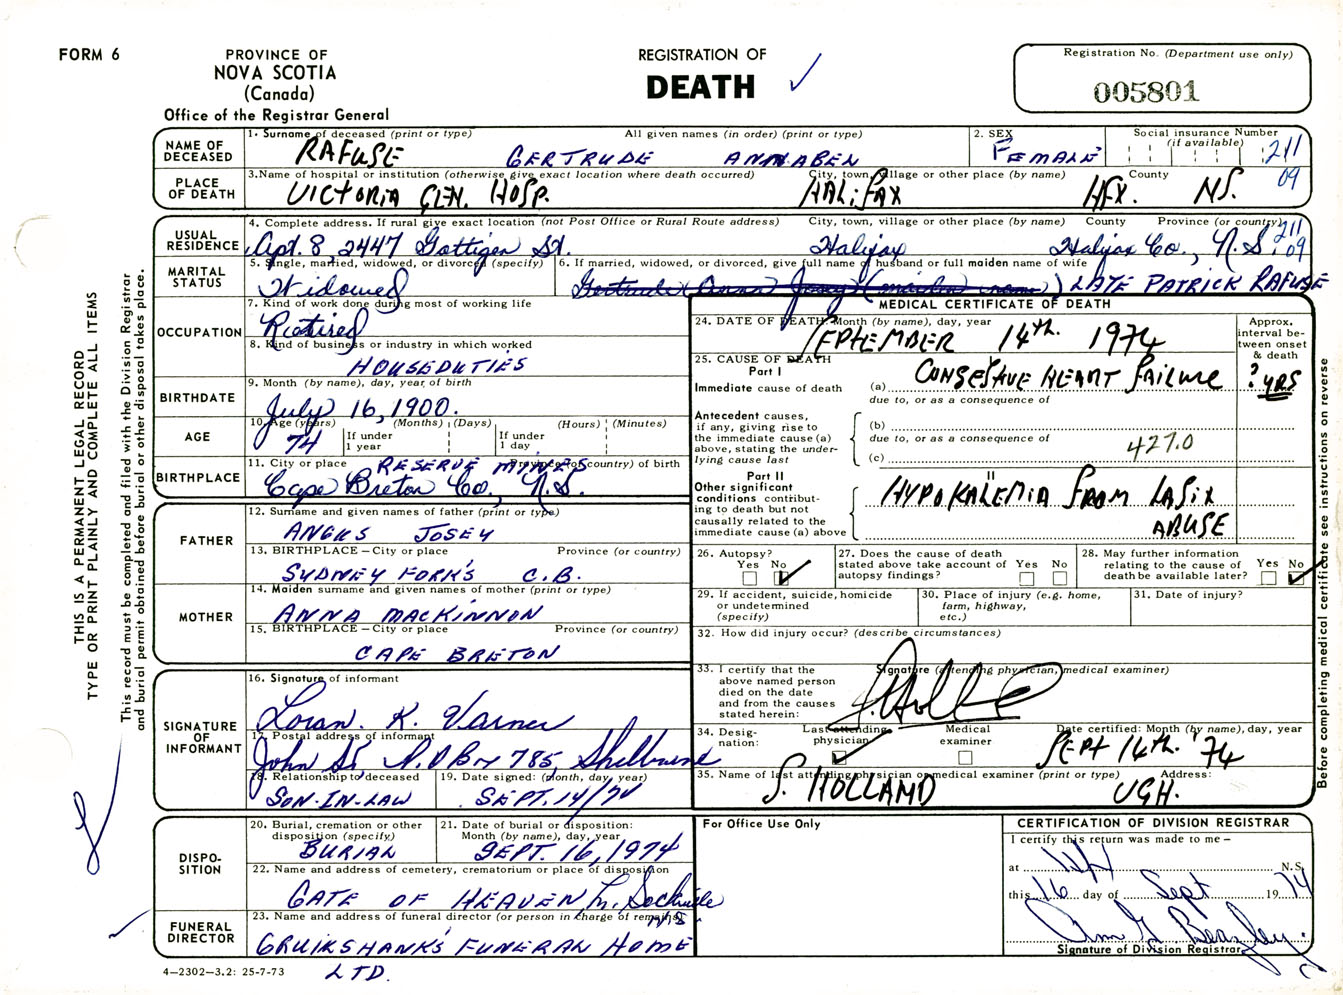 FORM 6
PROVINCE OF
NOVA SCOTIA
(Canada)
Office of the Registrar General
REGISTRATION OF
DEATH
Registration No. (Department use only)
005801
NAME OF
DECEASED
1. Surname of deceased (print or type) All given names (in order) (print or type)
RAFUSE GERTRUDE ANNABEN
2. SEX
FEMALE
Social insurance Number
(if available)
211
09
PLACE
OF DEATH
3. Name of hospital or institution (otherwise give exact location where death occurred) City, town, village or other place (by name) County
VICTORIA GEN. HOSP. HALIFAX HFX. NS.
USUAL
RESIDENCE
4. Complete address. If rural give exact location (not Post Office or Rural Route address) City, town, village or other place (by name) County Province (or country)
Apt. 8, 2447 Gottigen St. Halifax Halifax Co., N.S.
211
09
MARITAL
STATUS
5. Single, married, widowed, or divorced (specify)
Widowed
6. If married, widowed, or divorced, give full name of husband or full maiden name of wife
Gertrude Anna Josey (maiden name) LATE PATRICK RAFUSE
OCCUPATION
7. Kind of work done during most of working life
Retired
8. Kind of business or industry in which worked
HOUSEDUTIES
BIRTHDATE
9. Month (by name), day, year of birth
July 16, 1900.
AGE
10. Age (years) (Months) (Days) (Hours) (Minutes)
74
If under
1 year
If under
1 day
BIRTHPLACE
11. City or place Province (or country) of birth
RESERVE MINES
Cape Breton Co., N.S.
FATHER
12. Surname and given names of father (print or type)
ANGUS JOSEY
13. BIRTHPLACE – City or place Province (or country)
SYDNEY FORKS C.B.
MOTHER
14. Maiden surname and given names of mother (print or type)
ANNA MACKINNON
15. BIRTHPLACE – City or place Province (or country)
CAPE BRETON
SIGNATURE
OF
INFORMANT
16. Signature of informant
Loran K. Varner
17. Postal address of informant
John St. P.O Bx 785, Shelburne
18. Relationship to deceased
SON-IN-LAW
19. Date signed: (month, day, year)
SEPT. 14/74
DISPO-
SITION
20. Burial, cremation or other
disposition (specify)
BURIAL
21. Date of burial or disposition:
Month (by name), day, year
SEPT. 16, 1974
22. Name and address of cemetery, crematorium or place of disposition
GATE OF HEAVEN, L. Sackville
N S
FUNERAL
DIRECTOR
23. Name and address of funeral director (or person in charge of remains)
CRUIKSHANK'S FUNERAL HOME
LTD.
4–2302–3.2: 25-7-73
MEDICAL CERTIFICATE OF DEATH
24. DATE OF DEATH: Month (by name), day, year
SEPTEMBER 14th. 1974
Approx.
interval be-
tween onset
& death
25. CAUSE OF DEATH
Part I
Immediate cause of death
(a) CONGESTIVE HEART FAILURE
? yrs
due to, or as a consequence of
Antecedent causes,
if any, giving rise to
the immediate cause (a)
above, stating the under-
lying cause last
(b)
due to, or as a consequence of
427.0
(c)
Part II
Other significant
conditions contribut-
ing to death but not
causally related to the
immediate cause (a) above
II
HYPOKALEMIA FROM LASIX
ABUSE
26. Autopsy?
Yes No
27. Does the cause of death
stated above take account of
autopsy findings?
Yes No
28. May further information
relating to the cause of
death be available later?
Yes No
29. If accident, suicide, homicide
or undetermined
(specify)
30. Place of injury (e.g. home,
farm, highway,
etc.)
31. Date of injury?
32. How did injury occur? (describe circumstances)
33. I certify that the
above named person
died on the date
and from the causes
stated herein:
Signature (attending physician, medical examiner)
34. Desig-
nation:
Last attending
physician
Medical
examiner
Date certified: Month (by name), day, year
SEPT 14th. '74
35. Name of last attending physician or medical examiner (print or type) Address:
S. HOLLAND VGH.
For Office Use Only
CERTIFICATION OF DIVISION REGISTRAR
I certify this return was made to me –
at N.S.
this 16 day of Sept 19 74
Signature of Division Registrar
THIS IS A PERMANENT LEGAL RECORD
TYPE OR PRINT PLAINLY AND COMPLETE ALL ITEMS
This record must be completed and filed with the Division Registrar
and burial permit obtained before burial or other disposal takes place.
Before completing medical certificate see instructions on reverse